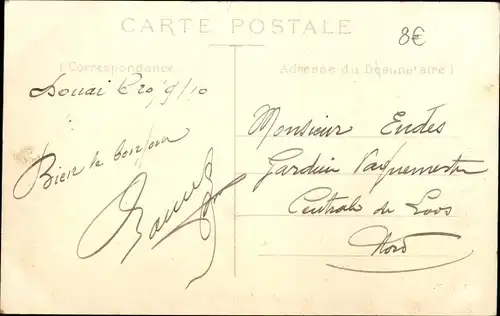 CARTE POSTALE
8€
(Correspondance
Adresse du Destinataire)
Douai le 20/9/10
Bien le bonjour
Monsieur Endès
Gardien Vaguemestre
Centrale de Loos
Nord